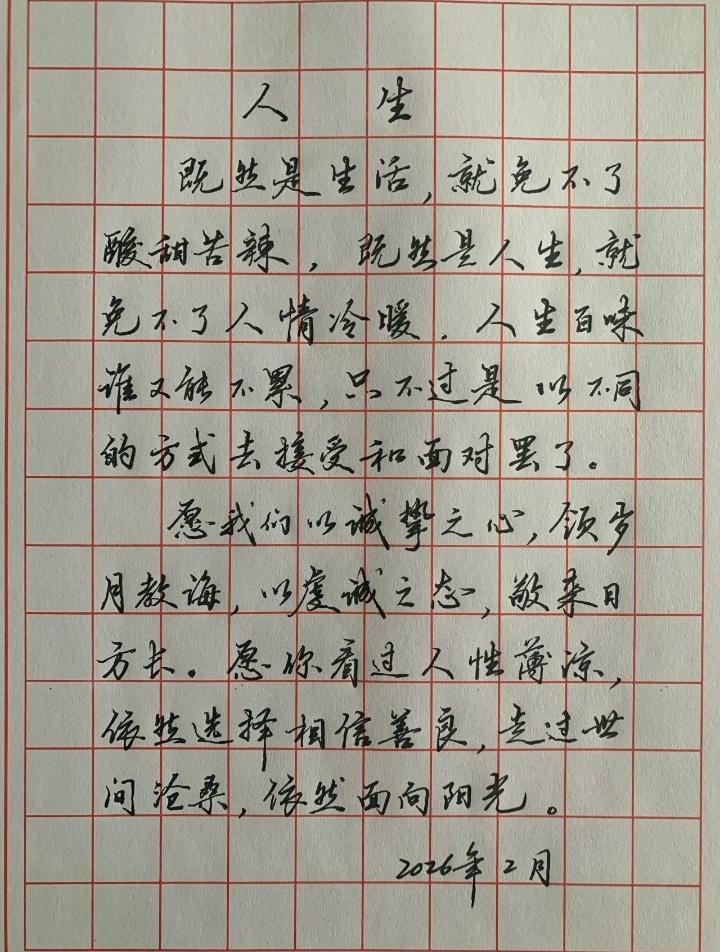 人 生
既然是生活,就免不了
酸甜苦辣,既然是人生,就
免不了人情冷暖.人生百味
谁又能不累,只不过是以不同
的方式去接受和面对罢了。
愿我们以诚挚之心,领岁
月教诲,以虔诚之态,敬来日
方长。愿你看过人性薄凉,
依然选择相信善良,走过世
间沧桑,依然面向阳光。
2026年2月